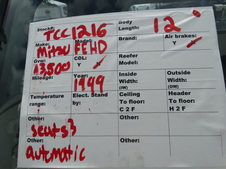 Stock#: TCC1216 Body Length: 12'
Make: Mitsu FEHD Brand: Air brakes: Y
GVW: 13,500 CDL: Y Reefer Model:
Mileage: Year: 1999 Inside Width: (IW) Outside Width: (OW)
Temperature range: Elect. Stand by Y Ceiling To floor: C 2 F Header To floor: H 2 F
Other: seats 3 Other:
Other: automatic Other: